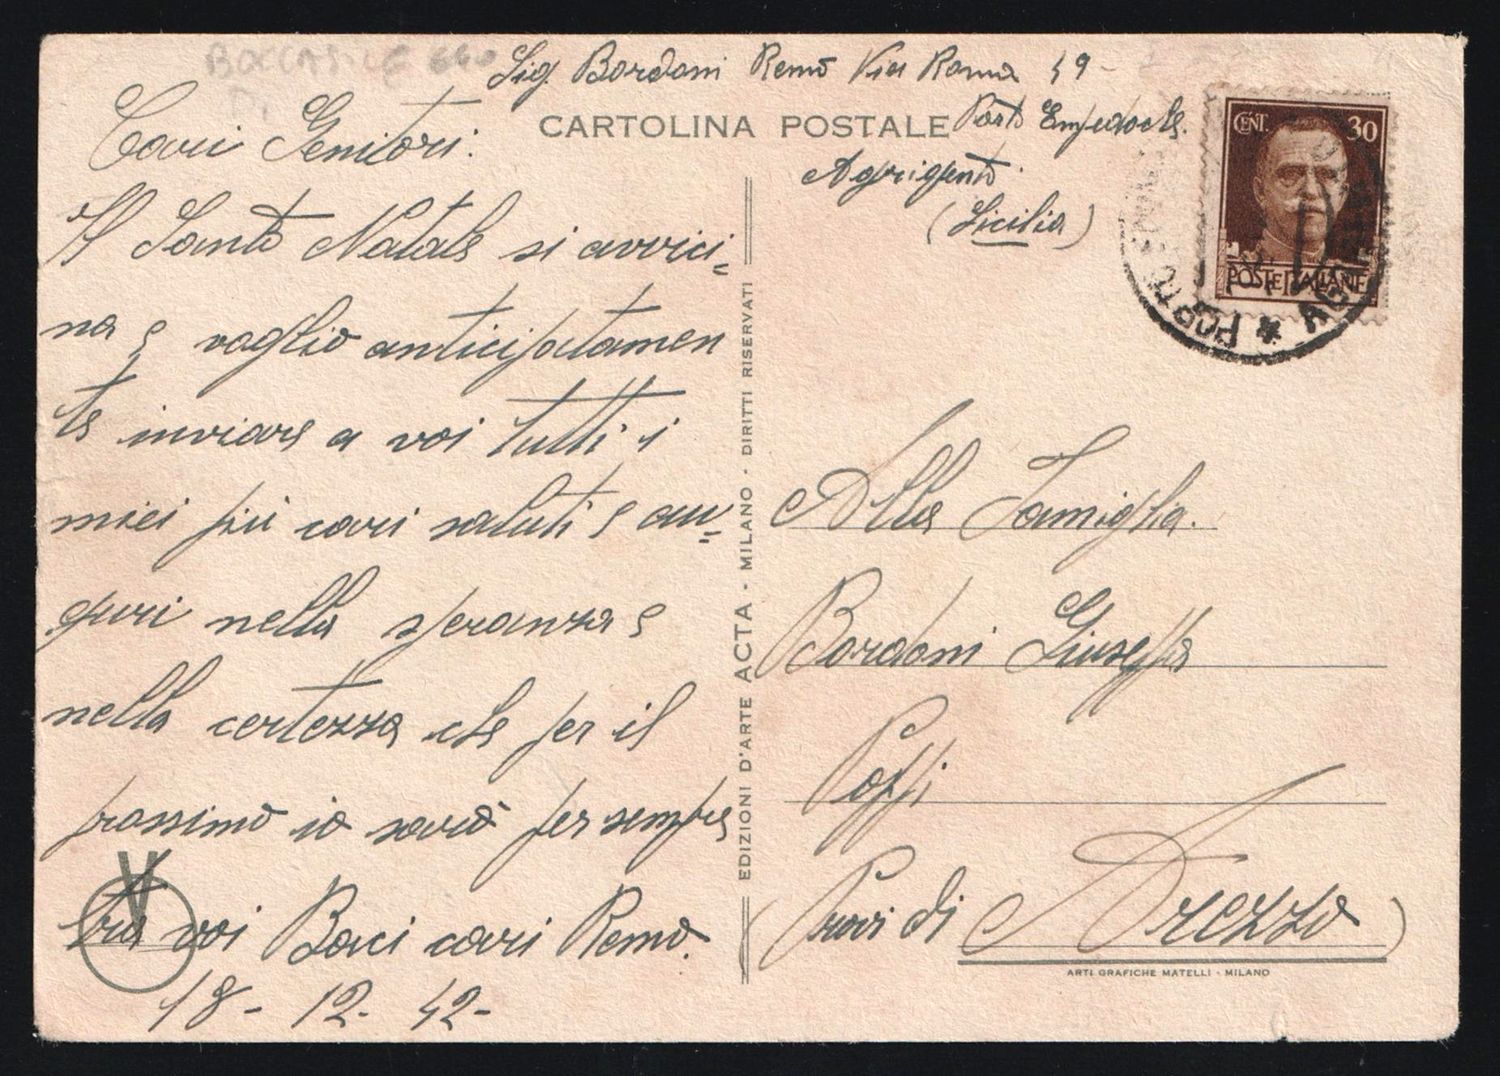 BOCCASILE
Sig. Bordoni Remo Via Roma 49-
Porto Empedocle.
Agrigento
(Sicilia)
CARTOLINA POSTALE
CENT. 30
POSTE ITALIANE
PORTO
Cari Genitori.
Il Santo Natale si avvici=
na e voglio anticipatamen
te inviare a voi tutti i
miei più cari saluti e au=
guri nella speranza e
nella certezza che per il
prossimo io sarò per sempre
tra voi Baci cari Remo.
18-12-42-
V
EDIZIONI D'ARTE ACTA - MILANO - DIRITTI RISERVATI
Alla Famiglia.
Bordoni Giuseppe
Poppi
(Provi di Arezzo)
ARTI GRAFICHE MATELLI - MILANO